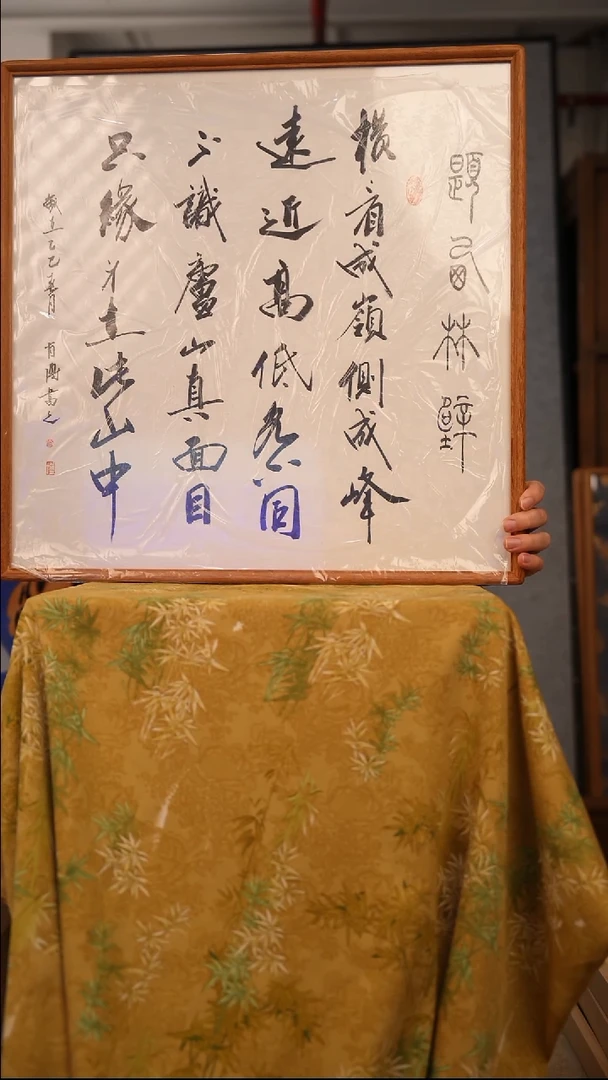 題西林壁
橫看成嶺側成峰
遠近高低各不同
不識廬山真面目
只緣身在此山中
歲在乙巳春月 書之